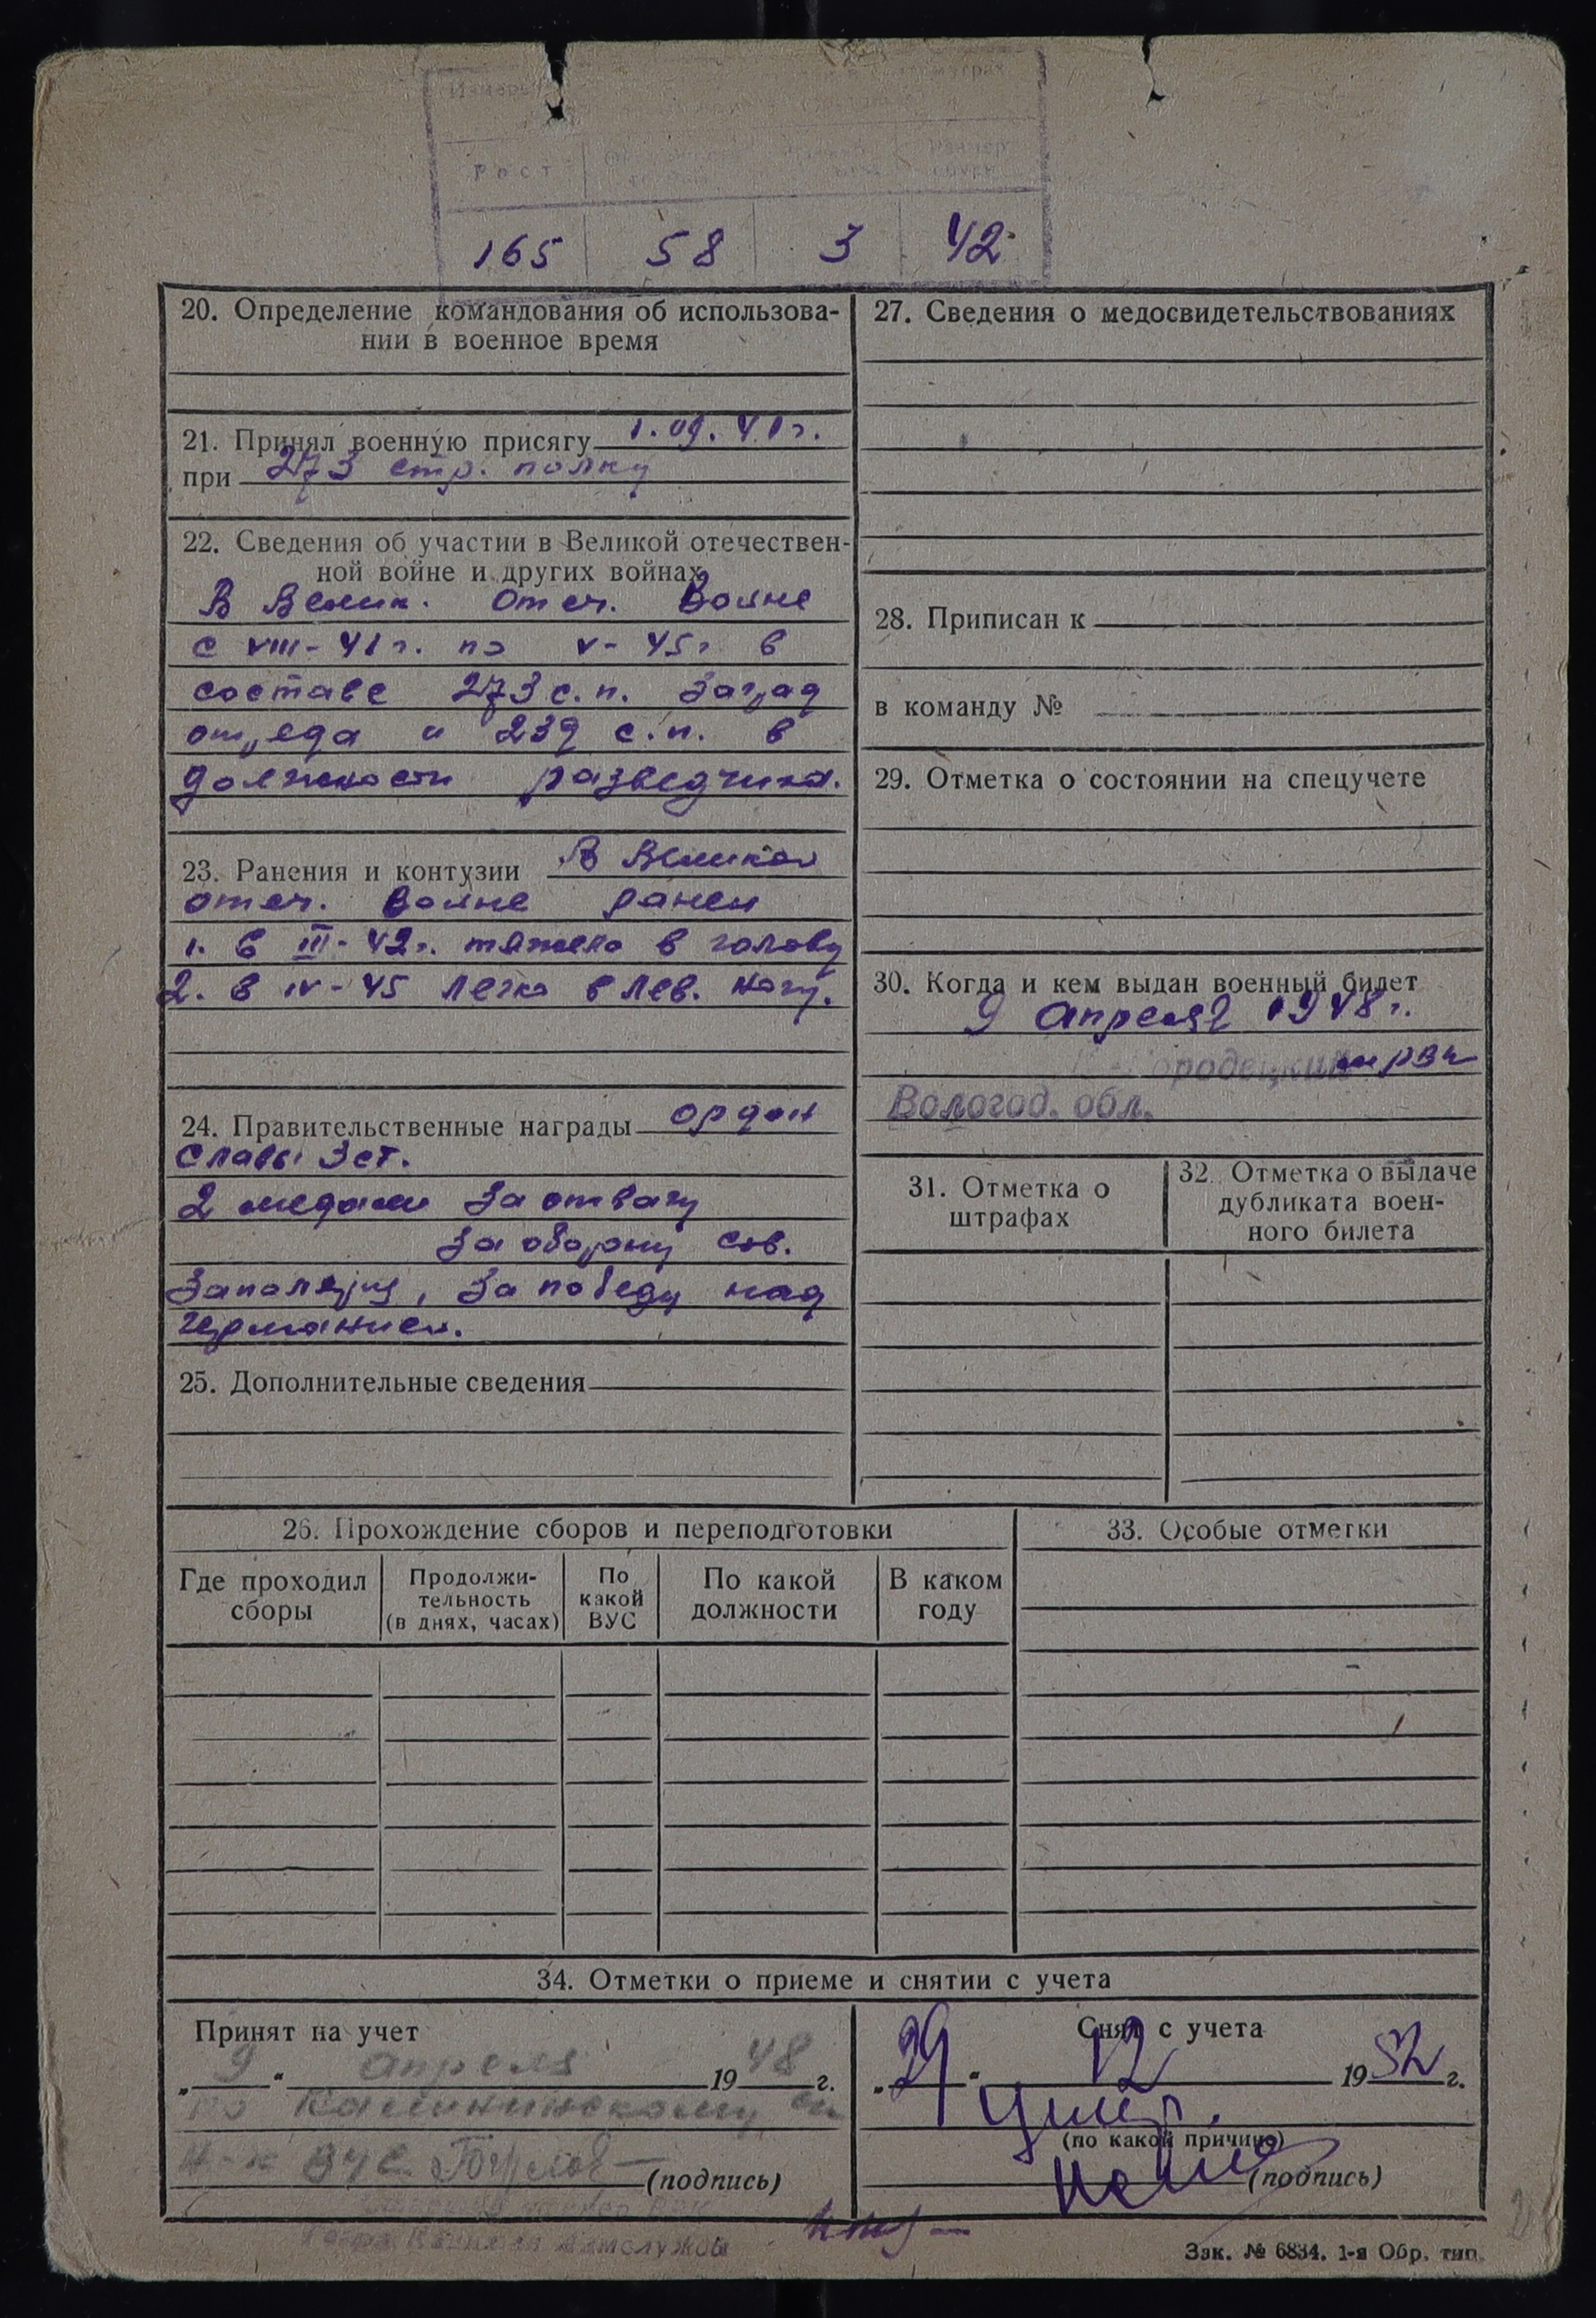 Рост
Размер
165 58 3 42
20. Определение командования об использова-
нии в военное время
21. Принял военную присягу 1.09.41г.
при 273 стр. полку
22. Сведения об участии в Великой отечествен-
ной войне и других войнах
В Велик. Отеч. Войне
с VIII-41г. по V-45г в
составе 273 с.п. Заград
отряда и 239 с.п. в
должности разведчика.
23. Ранения и контузии В Великой
отеч. войне ранен
1. в III-42г. тяжело в голову
2. в IV-45 легко в лев. ногу.
24. Правительственные награды орден
Славы 3 ст.
2 медали За отвагу
За оборону Сов.
Заполярья, За победу над
Германией.
25. Дополнительные сведения
27. Сведения о медосвидетельствованиях
28. Приписан к
в команду №
29. Отметка о состоянии на спецучете
30. Когда и кем выдан военный билет
9 апреля 1948г.
РВК
Вологод. обл.
31. Отметка о
штрафах
32. Отметка о выдаче
дубликата воен-
ного билета
26. Прохождение сборов и переподготовки
Где проходил
сборы
Продолжи-
тельность
(в днях, часах)
По
какой
ВУС
По какой
должности
В каком
году
33. Особые отметки
34. Отметки о приеме и снятии с учета
Принят на учет
„9“ апреля 1948 г.
по Калининскому
(подпись)
Снят с учета
„29“ 12 1952 г.
умер.
(по какой причине)
(подпись)
Зак. № 6834. 1-я Обр. тип.